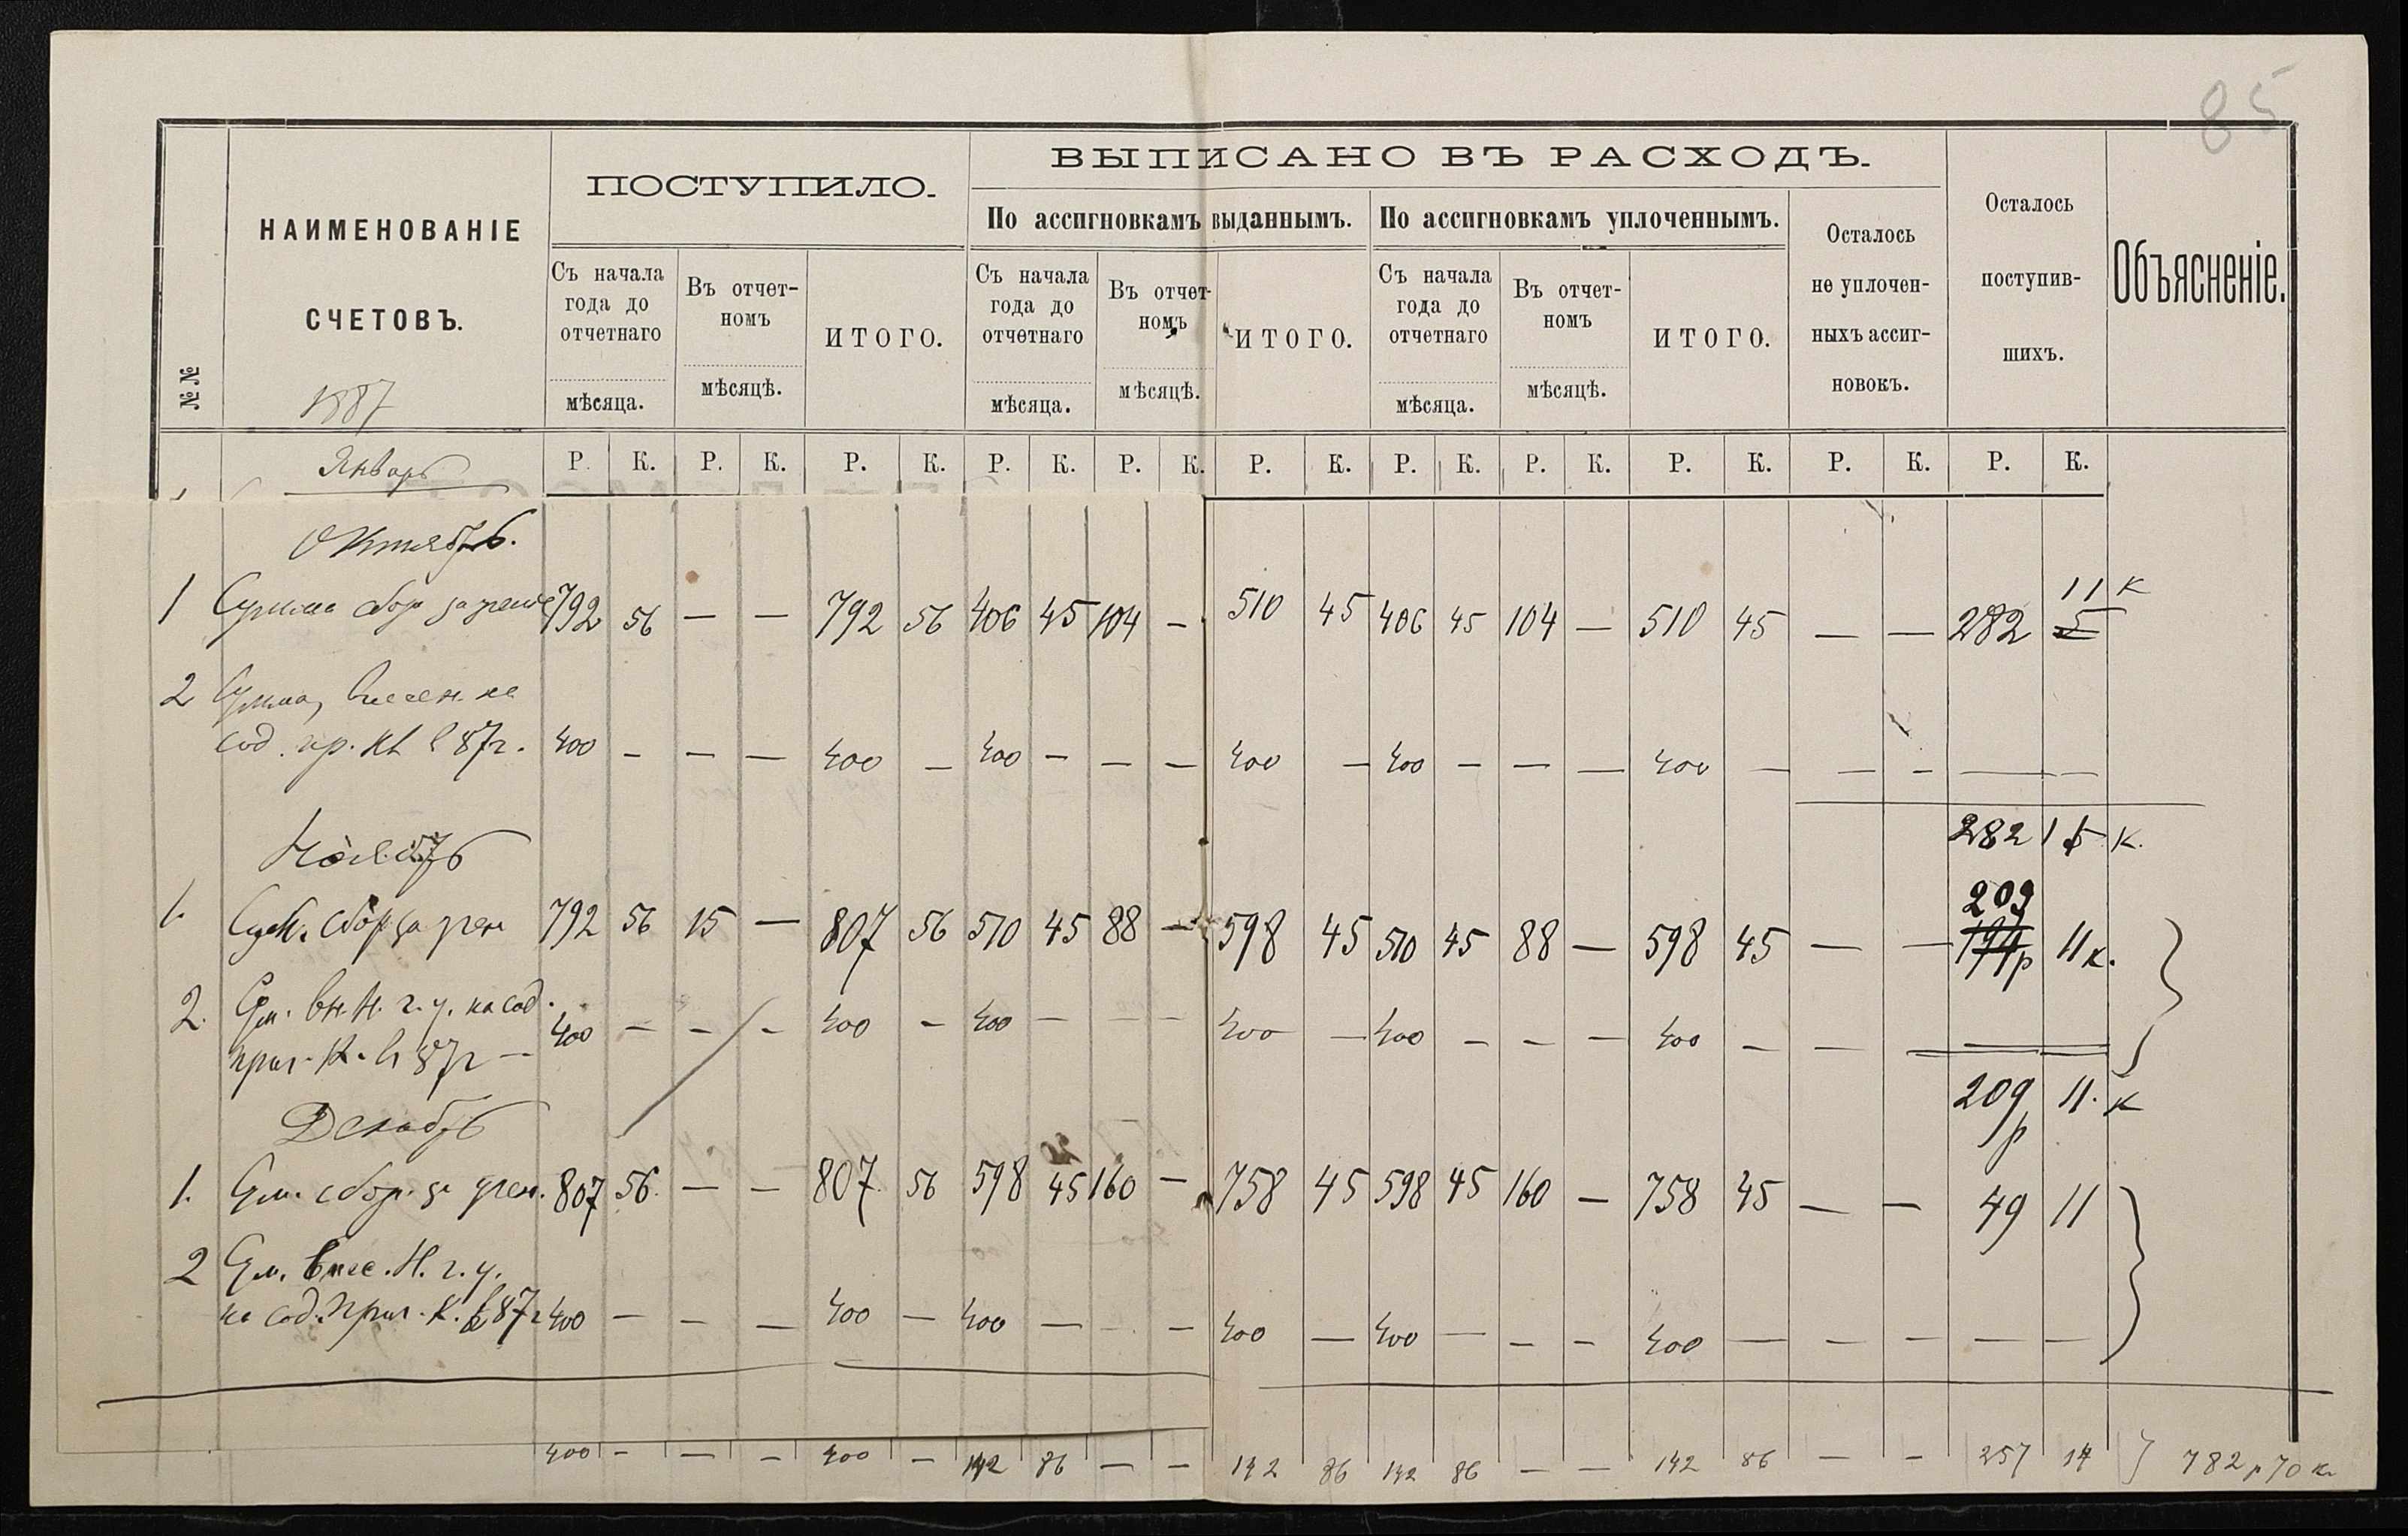 85
№№
НАИМЕНОВАНІЕ СЧЕТОВЪ.
1887
ПОСТУПИЛО.
ВЫПИСАНО ВЪ РАСХОДЪ.
По ассигновкамъ выданнымъ.
По ассигновкамъ уплоченнымъ.
Съ начала года до отчетнаго мѣсяца.
Въ отчет-номъ мѣсяцѣ.
ИТОГО.
Съ начала года до отчетнаго мѣсяца.
Въ отчет-номъ мѣсяцѣ.
ИТОГО.
Съ начала года до отчетнаго мѣсяца.
Въ отчет-номъ мѣсяцѣ.
ИТОГО.
Осталось не уплочен-ныхъ ассиг-новокъ.
Осталось поступив-шихъ.
Объясненіе.
Январь
Р. К. Р. К. Р. К. Р. К. Р. К. Р. К. Р. К. Р. К. Р. К. Р. К. Р. К.
Октябрь.
11 к
1 Сумма сбор за учение 792 56 — — 792 56 406 45 104 — 510 45 406 45 104 — 510 45 — — 282 5
2 Сумма, внесен. на
сод. пр. кл в 87г. 400 — — — 400 — 400 — — — 400 — 400 — — — 400 — — — — —
282 15 к.
Ноябрь
209
1. Сум. сбор за учен 792 56 15 — 807 56 510 45 88 — 598 45 510 45 88 — 598 45 — — 194р 11 к.
2. Сум. вн. Н. г. у. на сод.
приг. К. в 87г — 400 — — — 400 — 400 — — — 400 — 400 — — — 400 — —
209 р 11. к
Декабрь
1. Сум. сбор. за учен. 807 56. — — 807 56 598 45 160 — 758 45 598 45 160 — 758 45 — — 49 11
2 Сум. внес. Н. г. у.
на сод. приг. К. в 87г 400 — — — 400 — 400 — — — 400 — 400 — — — 400 — — — — —
400 — — — 400 — 142 86 — — 142 86 142 86 — — 142 86 — — 257 14 782 р 70 к.